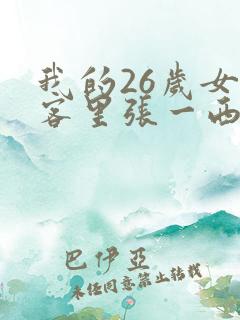 我的26歲女
客里張一西
巴伊亞
未經同意禁止轉載